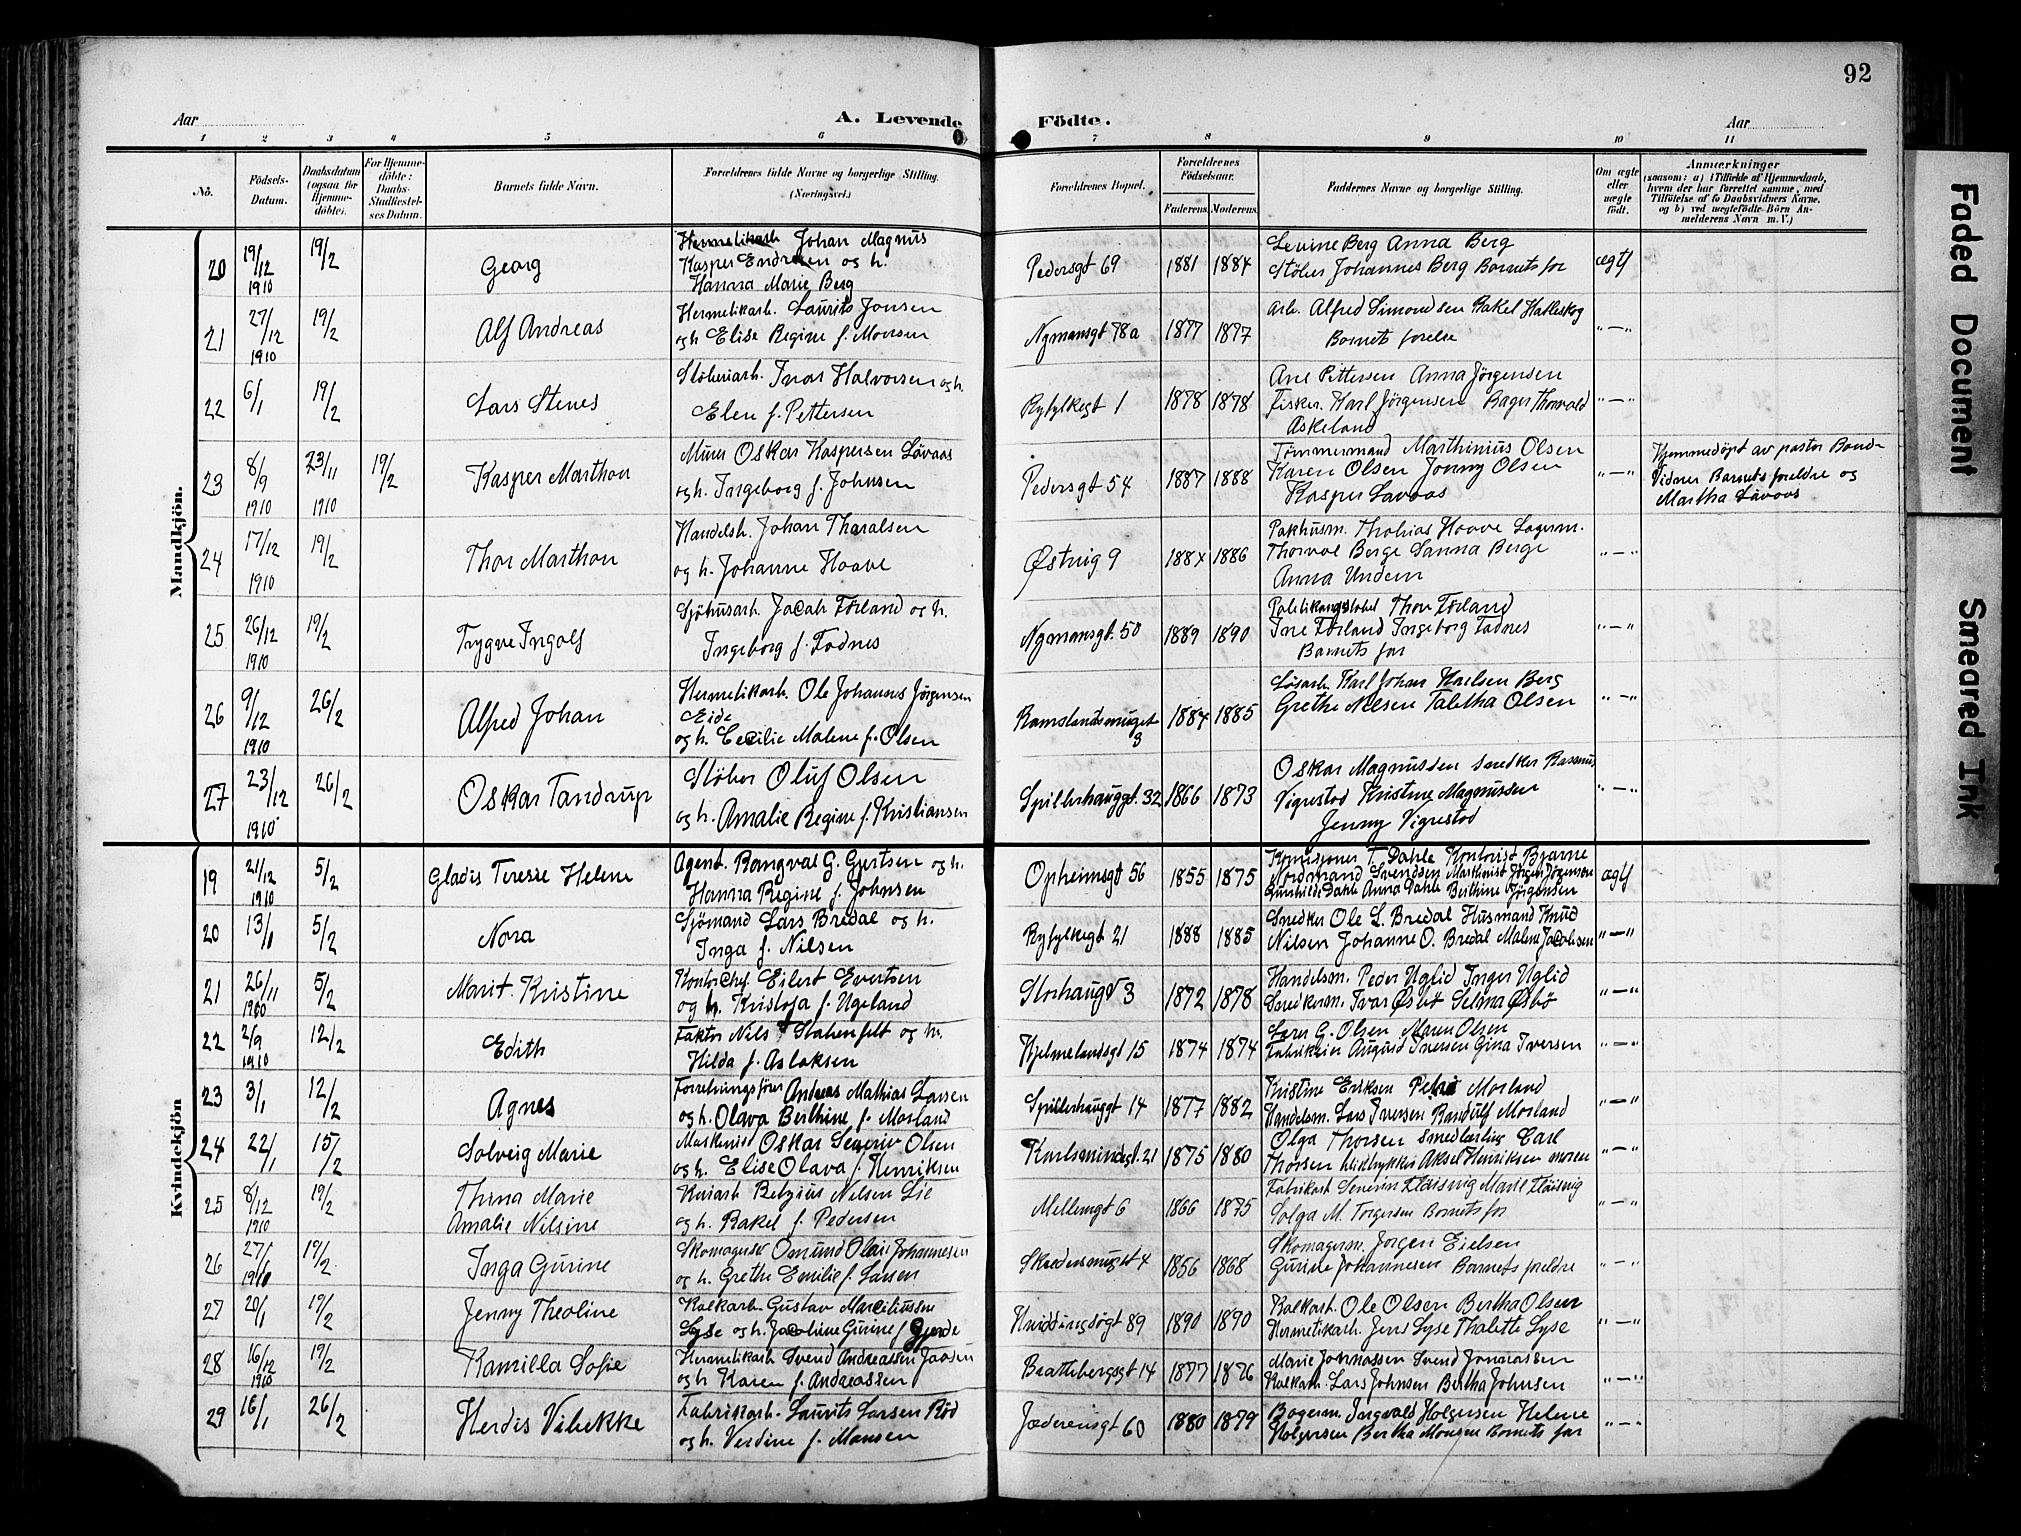 92
Aar
A. Levende Födte.
Aar
1 2 3 4 5 6 7 8 9 10 11
No.
Födsels-Datum.
Daabsdatum (ogsaa for Hjemme-döbte).
For Hjemme-döbte: Daabs-Stadfæstel-ses Datum.
Barnets fulde Navn.
Forældrenes fulde Navne og borgerlige Stilling. (Næringsvei.)
Forældrenes Bopæl.
Forældrenes Födselsaar.
Faderens. Moderens.
Faddernes Navne og borgerlige Stilling.
Om ægte eller uægte födt.
Anmærkninger
(saasom: a) i Tilfælde af Hjemmedaab, hvem der har forrettet samme, med Tilföielse af to Daabsvidners Navne, og b) ved uægtefödte Börn An-melderens Navn m. V.)
Mandkjön.
20 19/12 1910 19/2 Georg Hermetikarb. Johan Magnus Kasper Endresen og h. Hanna Marie Berg Pedersgt 69 1881 1884 Levine Berg Anna Berg Støber Johannes Berg Barnets far ægtf
21 27/12 1910 19/2 Alf Andreas Hermetikarb. Laurits Jonsen og h Elise Regine f. Monsen Nymansgt 78a 1877 1877 Arb. Alfred Simondsen Rakel Hatleskog Barnets forelre "—"
22 6/1 19/2 Lars Stenes Støberiarb. Ivar Halvorsen og h. Elen f. Pettersen Ryfylkegt 1 1878 1878 Ane Pettersen Anna Jörgensen Fisker. Karl Jörgensen Bager Thorvald Askeland "—"
23 8/9 1910 23/11 1910 19/2 Kasper Marthon Murer Oskar Kaspersen Lövaas og h. Ingeborg f. Johnsen Pedersgt 54 1887 1888 Tømmermand Marthinius Olsen Karen Olsen Jonny Olsen Kasper Lavaas "—" Hjemmedöpt av pastor Bond- Vidner Barnets foreldre og Martha Lövaas
24 17/12 1910 19/2 Thor Marthon Handelsb. Johan Tharalsen og h. Johanne Haave Østvig 9 1884 1886 Pakhusm. Thobias Haave Lagerm. Thorval Berge Sanna Berge Anna Undem "—"
25 26/12 1910 19/2 Trygve Ingolf Sjøhusarb. Jacob Förland og h. Ingeborg f. Fadnes Nymansgt. 50 1889 1890 Politikonstabel Thor Förland Ine Förland Ingeborg Fadnes Barnets far "—"
26 9/12 1910 26/2 Alfred Johan Hermetikarb. Ole Johannes Jörgensen Eide og h. Cecilie Malene f. Olsen Ramslandsmuget 3 1884 1885 Løsarb. Karl Johan Karlsen Berg Grethe Nilsen Talitha Olsen "—"
27 23/12 1910 26/2 Oskar Tandrup Støber Oluf Olsen og h. Amalie Regine f. Kristiansen Spilderhauggt. 32 1866 1873 Oskar Magnussen Snedker Rasmus Vigrestad Kristine Magnussen Jenny Vigrestad "—"
Kvindekjön
19 21/12 1910 5/2 Gladis Teresie Helene Agent. Rangval G. Gjertsen og h. Hanna Regine f. Johnsen Opheimsgt 56 1855 1875 T. Dahle Kontorist Bjarne Nordmand Svendsen Maskinist Jörgen Jörgensen Gunhilde Dahle Anna Dahle Berthine Jörgensen ægtf
20 13/1 5/2 Nora Sjömand Lars Bredal og h. Inga f. Nilsen Ryfylkegt 21 1888 1885 Snedker Ole L. Bredal Husmand Knud Nilsen Johanne O. Bredal Malene Jacobsen "—"
21 26/11 1910 5/2 Marit Kristine Kontorchef Eilert Evertsen og h. Kristofa f. Ugeland Storhaugt 3 1872 1878 Handelsm. Peder Uglid Inger Uglid Snedkerm. Ivar Østbö Selma Østbö "—"
22 26/9 1910 12/2 Edith Faktor Nils Stabenfelt og h. Hilda f. Aslaksen Hjelmelandsgt 15 1874 1874 Lars G. Olsen Maren Olsen Fabrikeier August Iversen Gina Iversen "—"
23 3/1 12/2 Agnes Forretningsfører Andreas Mathias Larsen og h. Olava Berthine f. Morland Spilderhauggt 14 1877 1882 Kristine Eriksen Petra Morland Handelsm. Lars Iversen Randulf Morland "—"
24 22/1 15/2 Solveig Marie Maskinist Oskar Severin Olsen og h. Elise Olava f. Henriksen Karlsmindegt. 21 1875 1880 Olga Thorsen Smedlærling Carl Thorsen blikttrykker Aksel Henriksen moren "—"
25 8/12 1910 19/2 Thina Marie Amalie Nilsine Kaiarb Betzius Nelsen Lie og h. Rakel f. Pedersen Mellemgt 6 1866 1875 Fabrikarb Severin Fløisvig Marie Fløisvig Solga M. Torgersen Barnets far "—"
26 27/1 1910 19/2 Inga Gurine Skomagersv Omund Olai Johannesen og h. Grethe Emilie f. Larsen Skredersmuget 4 1856 1868 Skomagerm. Jörgen Eielsen Gurine Johannesen Barnets foreldre "—"
27 20/1 19/2 Jenny Theoline Kalkarb. Gustav Marceliussen Lyse og h. Jacobine Gurine f Gjerde Hvidtingsögt 89 1890 1890 Kalkarb. Ole Olsen Bertha Olsen Hermetikarb. Jens Lyse Thalette Lyse "—"
28 16/12 1910 19/2 Kamilla Sofie Hermetikarb Svend Andreassen Jaasund og h Karen f. Andreassen Brattebergsgt 14 1877 1876 Marie Johnassen Svend Jonnassen Kalkarb. Lars Johnsen Bertha Johnsen "—"
29 16/1 26/2 Herdis Vibekke Fabrikarb. Laurits Larsen Röd og h. Verdine f. Monsen Jæderensgt 60 1880 1879 Bagerm. Ingvald Holgersen Helene Holgersen Bertha Monsen Barnets far "—"
Faded Document
Smeared Ink